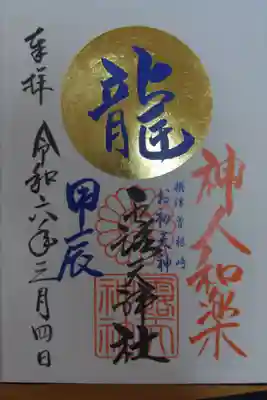 神人和楽
摂津曽根崎
お初天神
龍
露天神社
甲辰
奉拝
令和六年三月四日